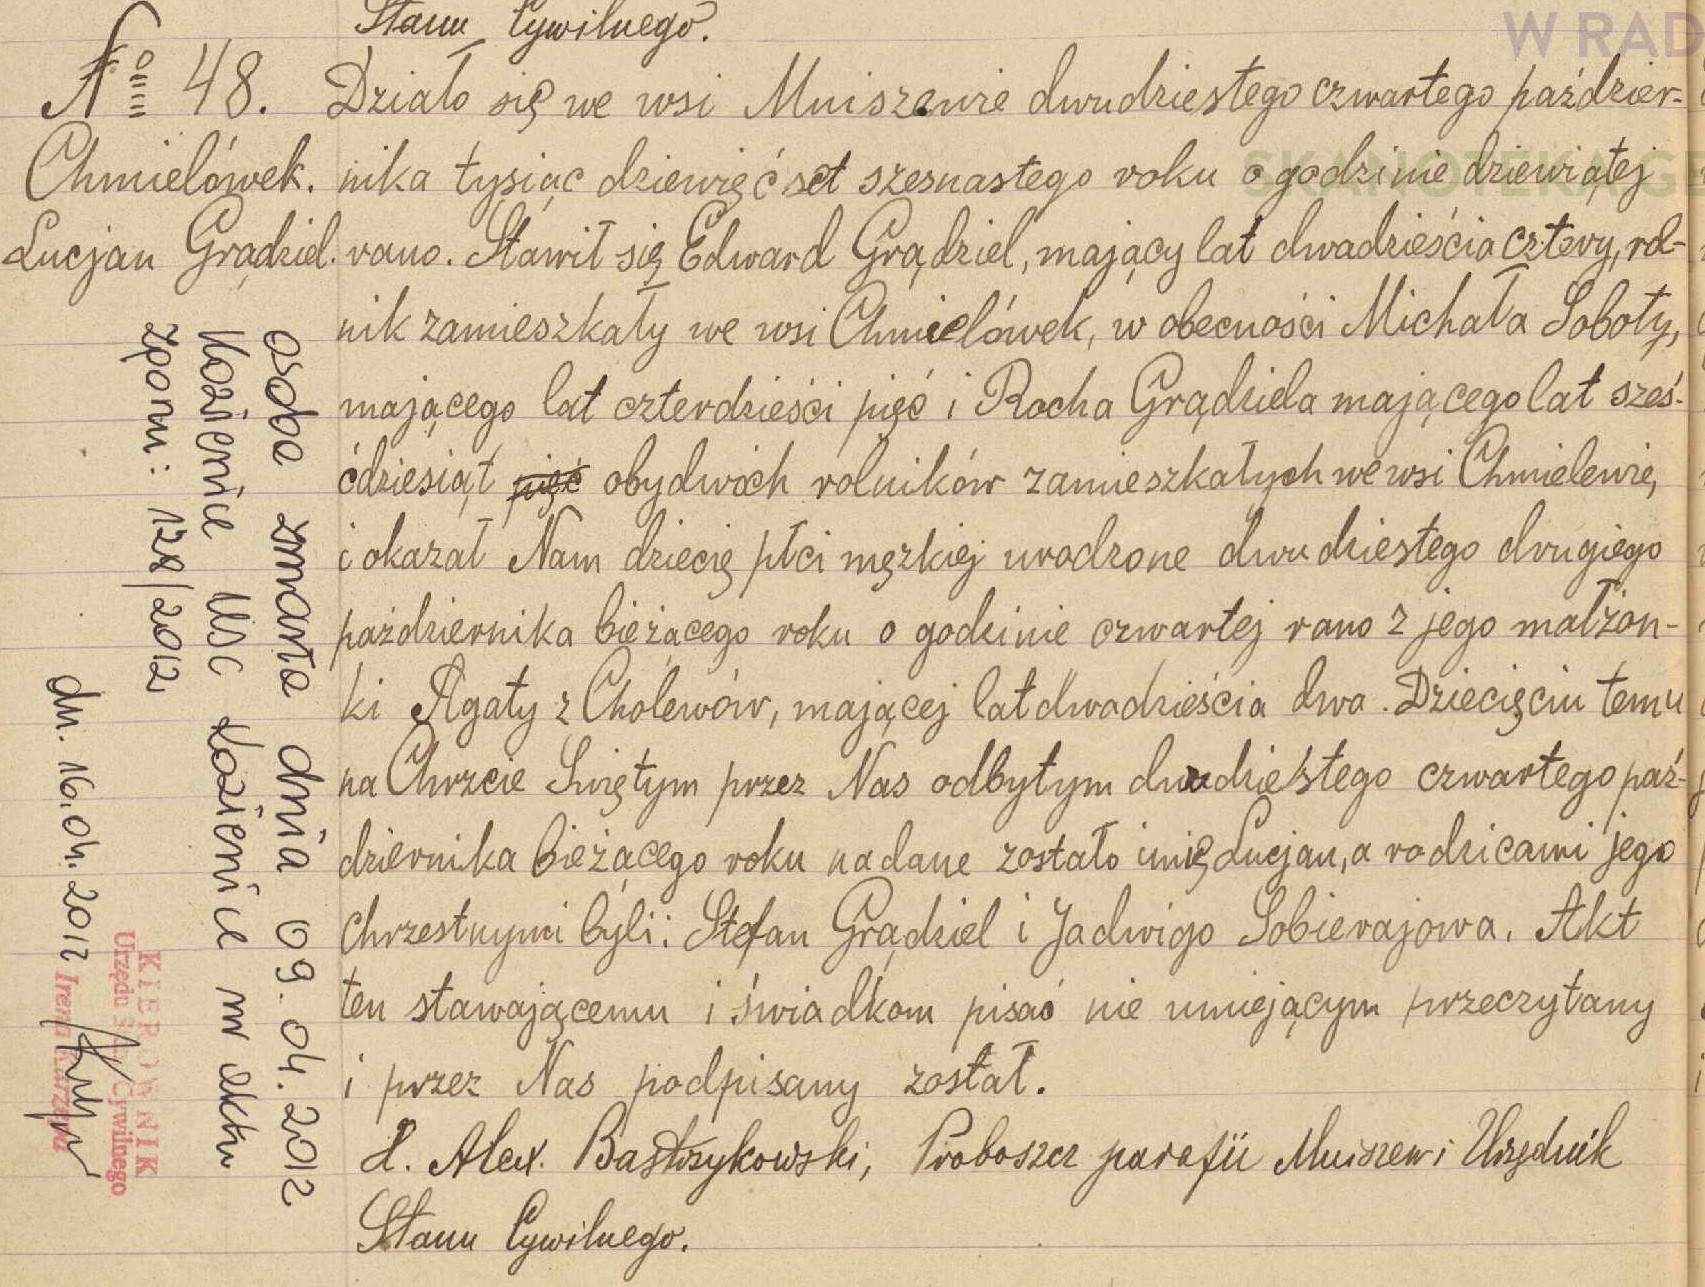 Stanu Cywilnego.
No 48.
Chmielówek.
Lucjan Grądziel.
Działo się we wsi Mniszewie dwudziestego czwartego paździer-
nika tysiąc dziewięćset szesnastego roku o godzinie dziewiątej
rano. Stawił się Edward Grądziel, mający lat dwadzieścia cztery, rol-
nik zamieszkały we wsi Chmielówek, w obecności Michała Soboty,
mającego lat czterdzieści pięć i Rocha Grądziela mającego lat sześ-
ćdziesiąt pięć obydwóch rolników zamieszkałych we wsi Chmielewie,
i okazał Nam dziecię płci męzkiej urodzone dwudziestego drugiego
października bieżącego roku o godzinie czwartej rano z jego małżon-
ki Agaty z Cholewów, mającej lat dwadzieścia dwa. Dziecięciu temu
na Chrzcie Świętym przez Nas odbytym dwudziestego czwartego paź-
dziernika bieżącego roku nadane zostało imię Lucjan, a rodzicami jego
chrzestnymi byli: Stefan Grądziel i Jadwiga Sobierajowa. Akt
ten stawającemu i świadkom pisać nie umiejącym przeczytany
i przez Nas podpisany został.
X. Alex. Bastrzykowski, Proboszcz parafii Mniszew i Urzędnik
Stanu Cywilnego.
osoba zmarła dnia 09.04.2012
Kozienice USC Kozienice nr aktu
zgonu: 128/2012
dn. 16.04.2012
KIEROWNIK
Urzędu Stanu Cywilnego
Irena
W RAD
SKANOTEKA GE